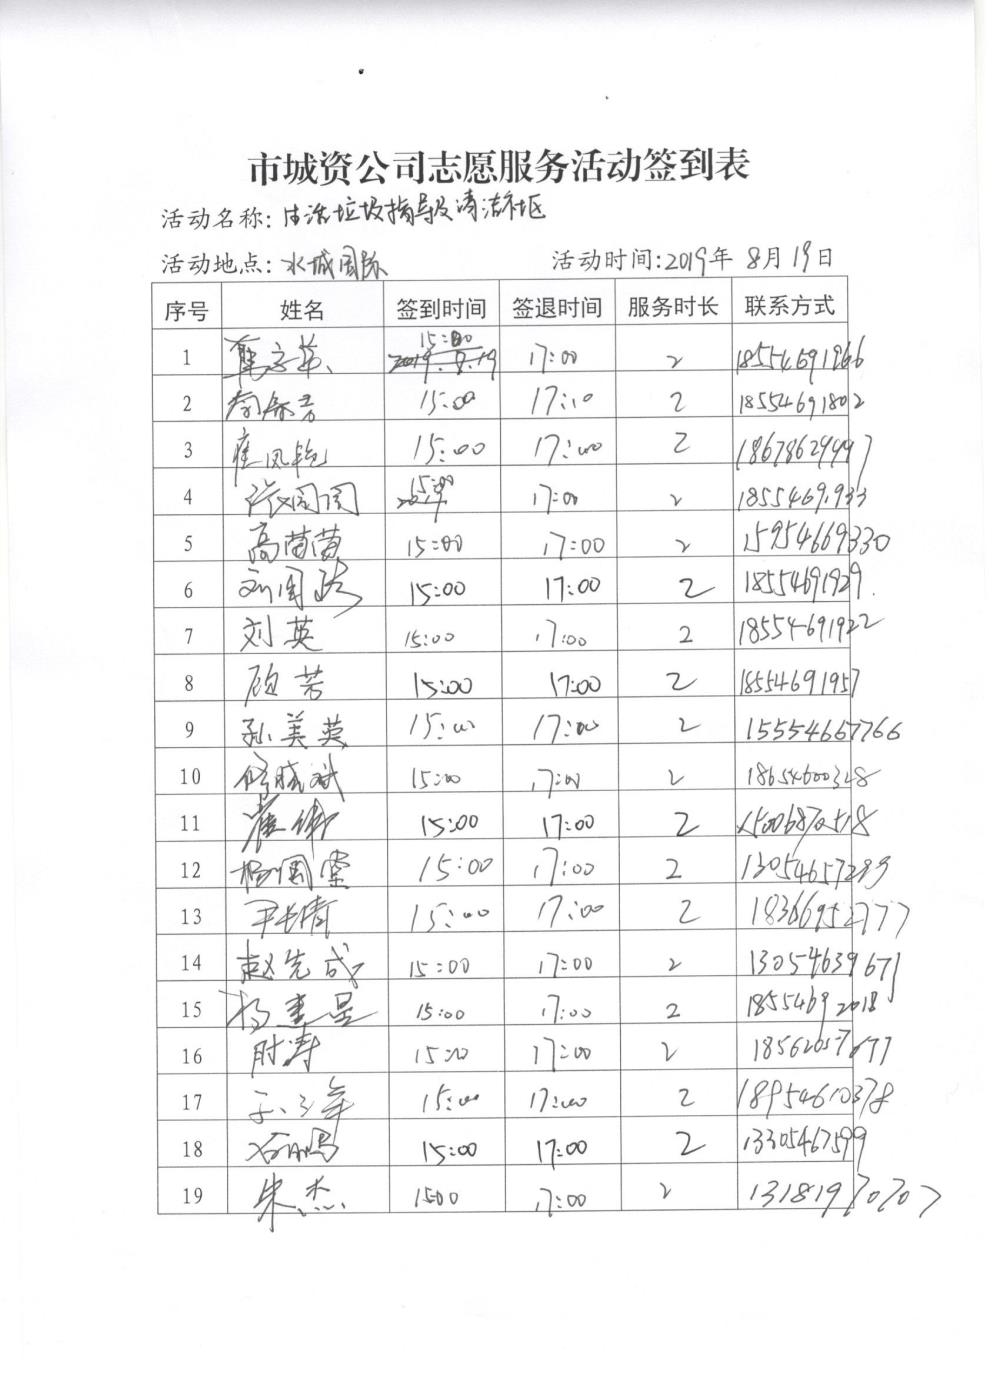 市城资公司志愿服务活动签到表
活动名称: 生活垃圾指导及清洁社区
活动地点: 水城国际 活动时间:2019年 8月19日
序号 姓名 签到时间 签退时间 服务时长 联系方式
1 15:00 17:00 2 18554691966
2 15:00 17:10 2 18554691802
3 崔风艳 15:00 17:00 2 18678629997
4 张圆圆 15:00 17:00 2 18554691933
5 高苗苗 15:00 17:00 2 15954669330
6 刘国 15:00 17:00 2 18554691929
7 刘英 15:00 17:00 2 18554691922
8 顾芳 15:00 17:00 2 18554691957
9 孙美英 15:00 17:00 2 15554667766
10 15:00 17:00 2 18654600328
11 崔 15:00 17:00 2
12 杨国 15:00 17:00 2 13054657299
13 尹倩 15:00 17:00 2 18366952777
14 赵先成 15:00 17:00 2 13054639671
15 杨 15:00 17:00 2 18554692018
16 时涛 15:00 17:00 2 18562057677
17 15:00 17:00 2 18954610378
18 15:00 17:00 2 13305467599
19 朱杰 1500 17:00 2 13181970707